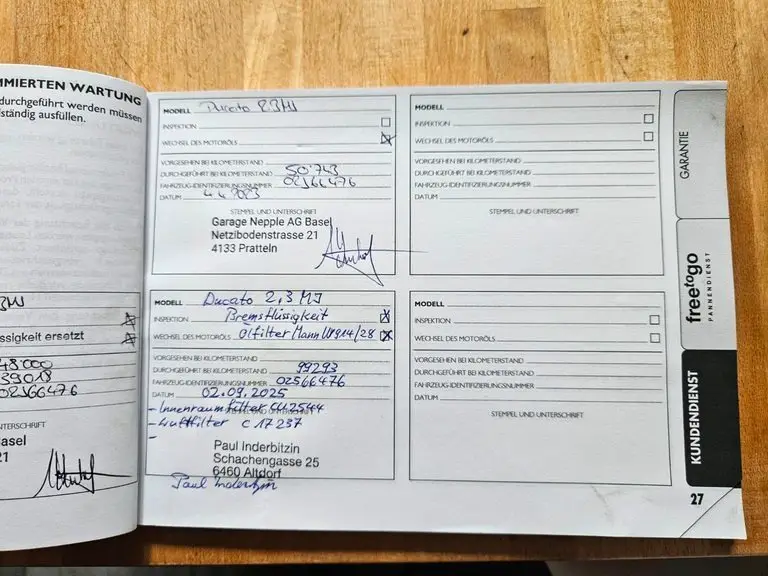 MMIERTEN WARTUNG
durchgeführt werden müssen
lständig ausfüllen.
ssigkeit ersetzt
48000
39013
02566476
NTERSCHRIFT
Basel
21
MODELL Ducato 2.3MJ
INSPEKTION
WECHSEL DES MOTORÖLS
VORGESEHEN BEI KILOMETERSTAND
DURCHGEFÜHRT BEI KILOMETERSTAND 50'743
FAHRZEUG-IDENTIFIZIERUNGSNUMMER 02566476
DATUM 4.4.2023
STEMPEL UND UNTERSCHRIFT
Garage Nepple AG Basel
Netzibodenstrasse 21
4133 Pratteln
MODELL Ducato 2,3 MJ
INSPEKTION Bremsflüssigkeit
WECHSEL DES MOTORÖLS Ölfilter Mann W914/28
VORGESEHEN BEI KILOMETERSTAND
DURCHGEFÜHRT BEI KILOMETERSTAND 99293
FAHRZEUG-IDENTIFIZIERUNGSNUMMER 02566476
DATUM 02.09.2025
STEMPEL UND UNTERSCHRIFT
- Innenraumfilter CU2544
- Luftfilter C 17 237
-
Paul Inderbitzin
Schachengasse 25
6460 Altdorf
Paul Inderbitzin
MODELL
INSPEKTION
WECHSEL DES MOTORÖLS
VORGESEHEN BEI KILOMETERSTAND
DURCHGEFÜHRT BEI KILOMETERSTAND
FAHRZEUG-IDENTIFIZIERUNGSNUMMER
DATUM
STEMPEL UND UNTERSCHRIFT
MODELL
INSPEKTION
WECHSEL DES MOTORÖLS
VORGESEHEN BEI KILOMETERSTAND
DURCHGEFÜHRT BEI KILOMETERSTAND
FAHRZEUG-IDENTIFIZIERUNGSNUMMER
DATUM
STEMPEL UND UNTERSCHRIFT
GARANTIE
freetogo
PANNENDIENST
KUNDENDIENST
27